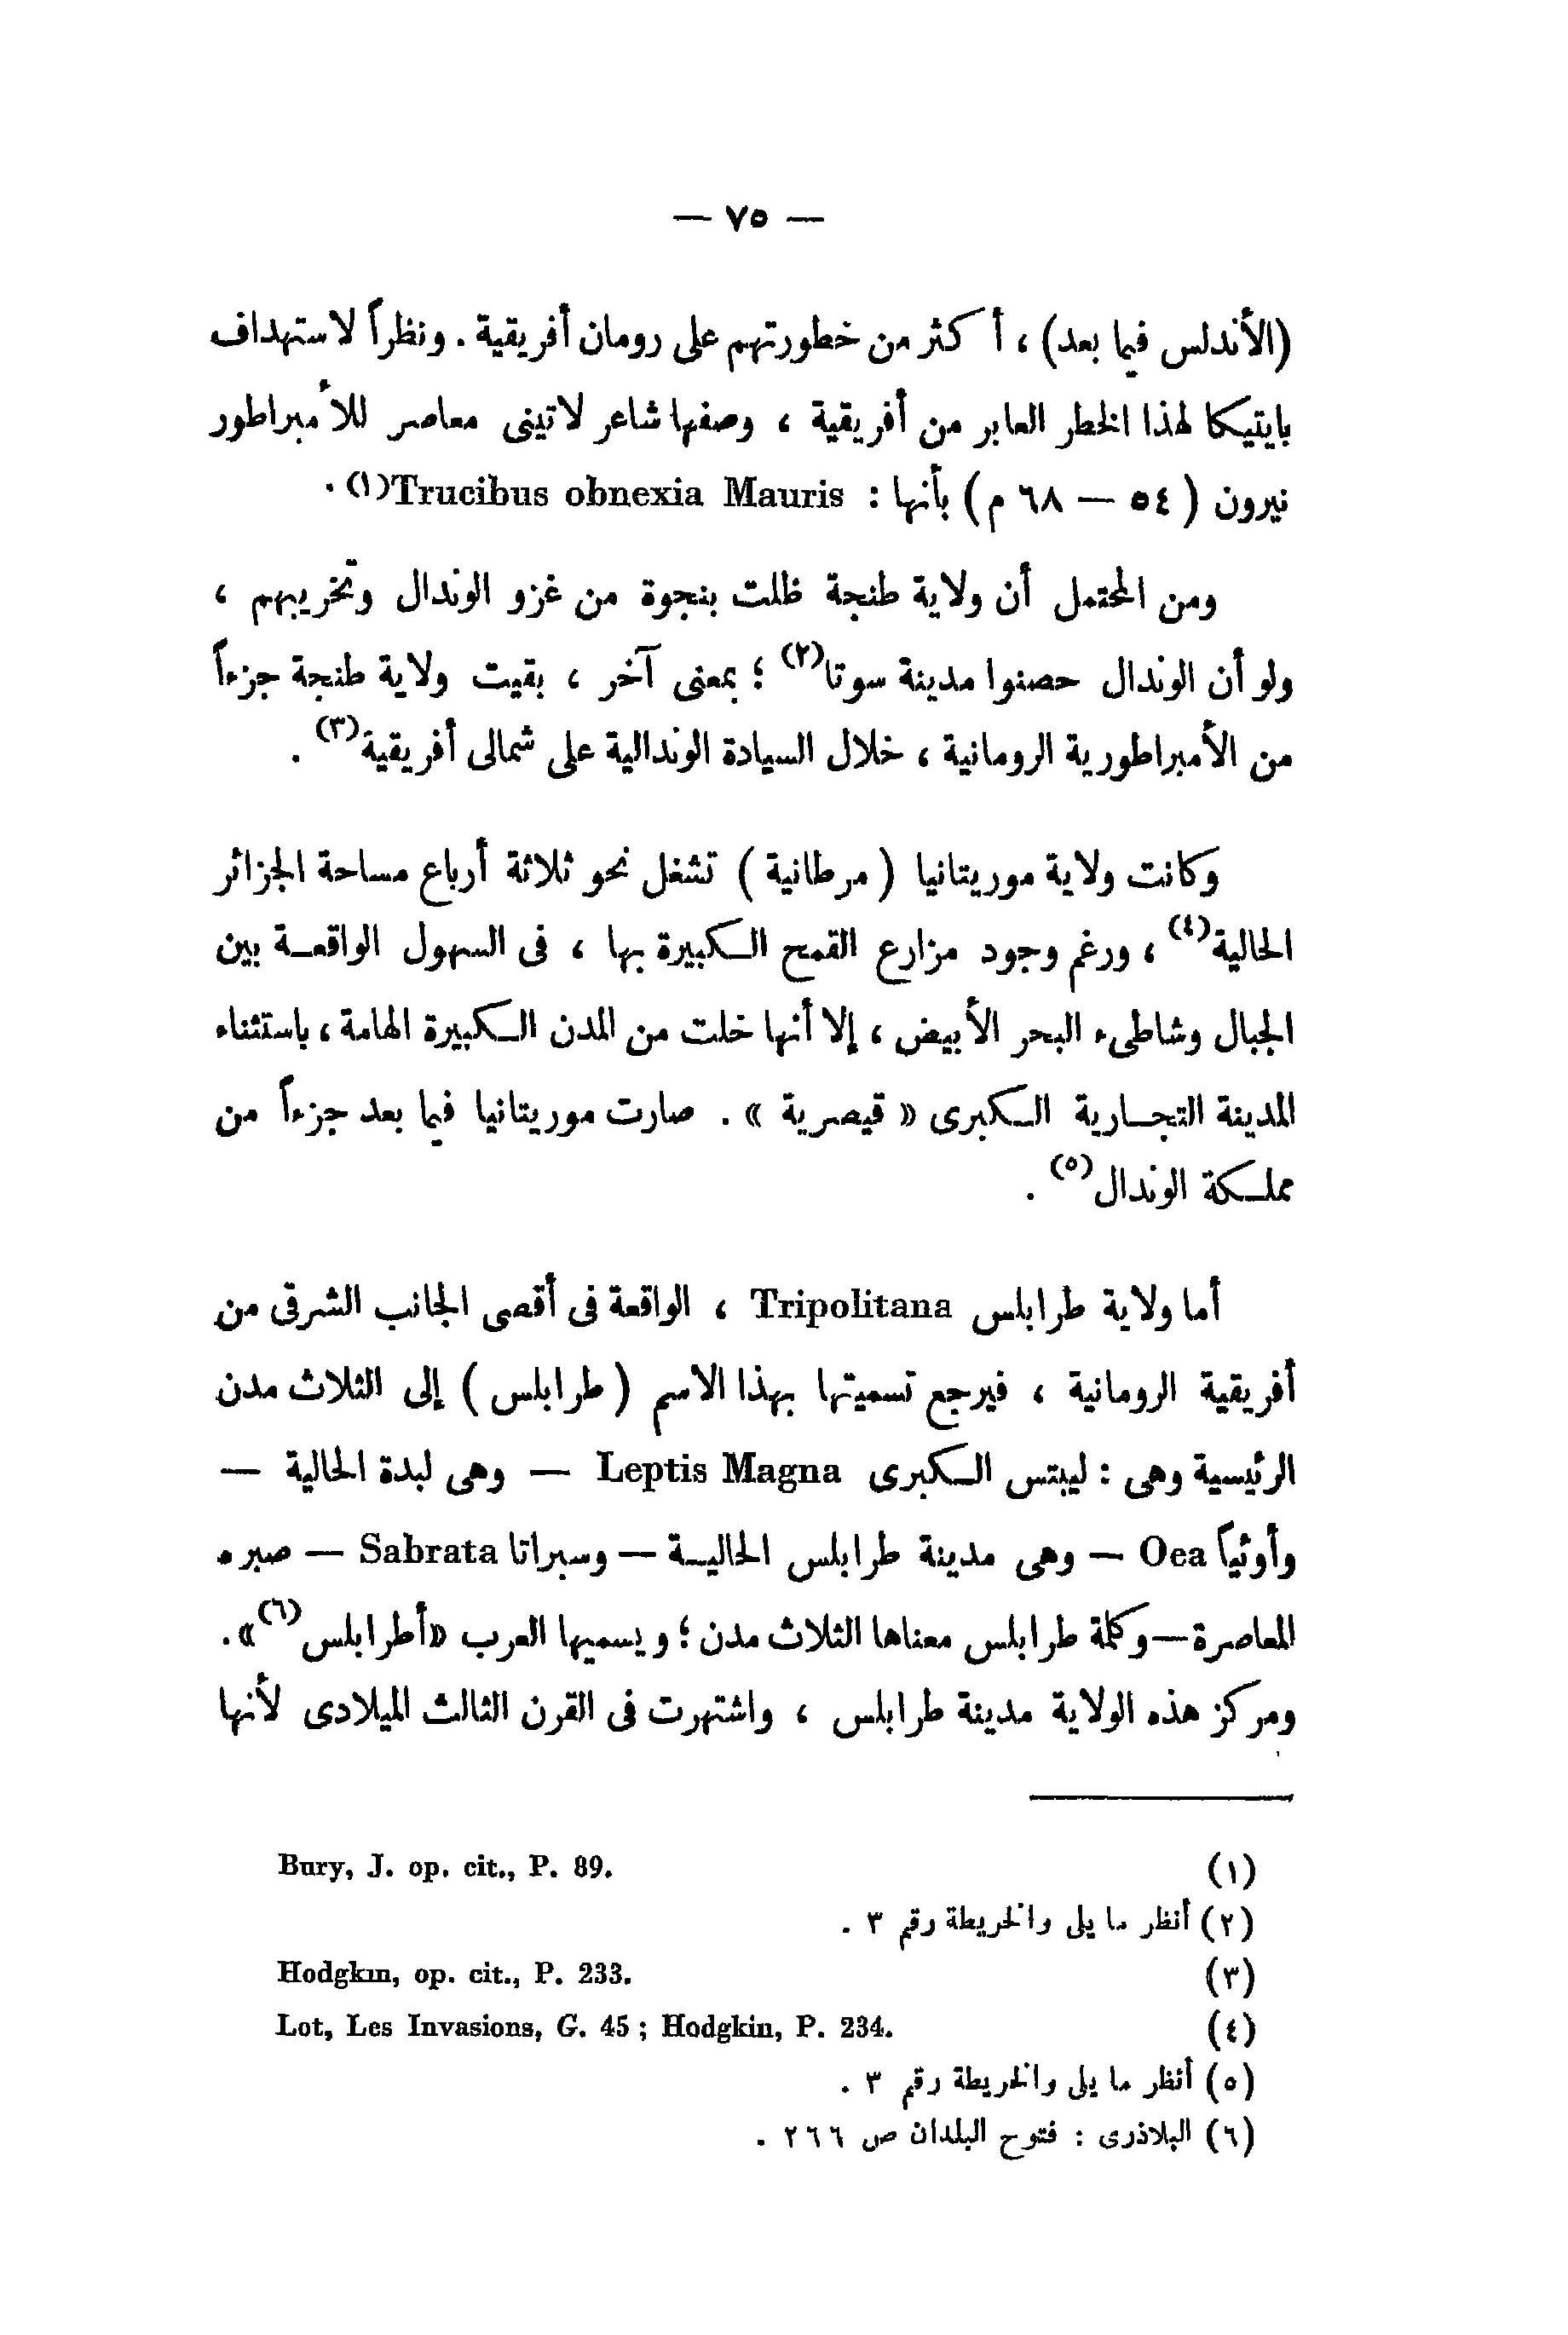 — ٧٥ —
(الأندلس فيما بعد) ، أكثر من خطورتهم على رومان أفريقية . ونظراً لاستهداف
بايتيكا لهذا الخطر العابر من أفريقية ، وصفها شاعر لاتينى معاصر للأمبراطور
نيرون ( ٥٤ — ٦٨ م ) بأنها : Trucibus obnexia Mauris(١) .
ومن المحتمل أن ولاية طنجة ظلت بنجوة من غزو الوندال وتخريبهم ،
ولو أن الوندال حصنوا مدينة سوتا(٢) ؛ بمعنى آخر ، بقيت ولاية طنجة جزءاً
من الأمبراطورية الرومانية ، خلال السيادة الوندالية على شمالى أفريقية(٣) .
وكانت ولاية موريتانيا ( مرطانية ) تشغل نحو ثلاثة أرباع مساحة الجزائر
الحالية(٤) ، ورغم وجود مزارع القمح الكبيرة بها ، فى السهول الواقعة بين
الجبال وشاطىء البحر الأبيض ، إلا أنها خلت من المدن الكبيرة الهامة ، باستثناء
المدينة التجارية الكبرى « قيصرية » . صارت موريتانيا فيما بعد جزءاً من
مملكة الوندال(٥) .
أما ولاية طرابلس Tripolitana ، الواقعة فى أقصى الجانب الشرقى من
أفريقية الرومانية ، فيرجع تسميتها بهذا الاسم ( طرابلس ) إلى الثلاث مدن
الرئيسية وهى : ليبتس الكبرى Leptis Magna — وهى لبدة الحالية —
وأوئياً Oea — وهى مدينة طرابلس الحالية — وسبراتا Sabrata — صبره
المعاصرة — وكلمة طرابلس معناها الثلاث مدن ؛ ويسميها العرب «أطرابلس(٦)» .
ومركز هذه الولاية مدينة طرابلس ، واشتهرت فى القرن الثالث الميلادى لأنها
(١) Bury, J. op. cit., P. 89.
(٢) أنظر ما يلى والخريطة رقم ٣ .
(٣) Hodgkin, op. cit., P. 233.
(٤) Lot, Les Invasions, G. 45 ; Hodgkin, P. 234.
(٥) أنظر ما يلى والخريطة رقم ٣ .
(٦) البلاذرى : فتوح البلدان ص ٢٦٦ .